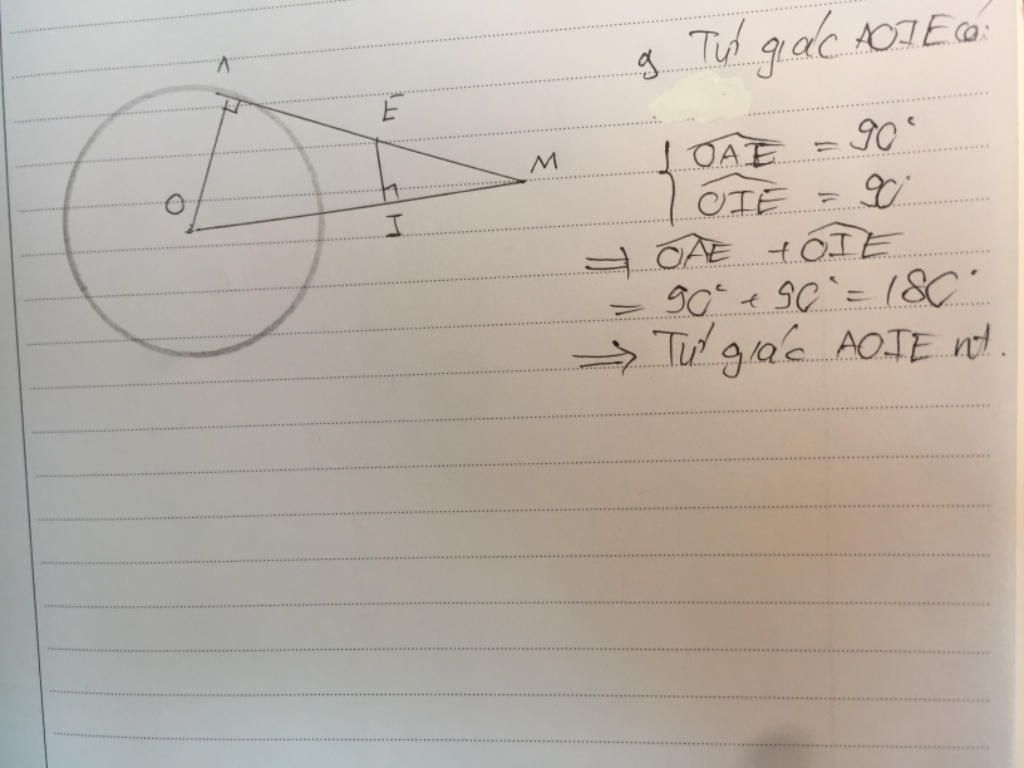 A
E
M
O
I
a) Tứ giác AOIE có:
{ OAE = 90°
OIE = 90°
⇒ OAE + OIE
= 90° + 90° = 180°
⇒ Tứ giác AOIE nt.